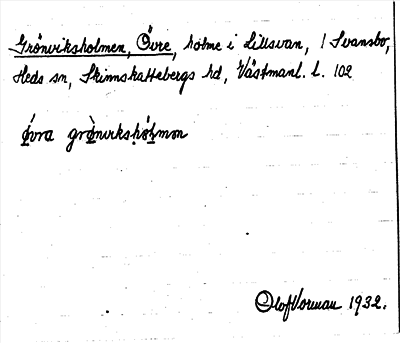 Grönviksholmen, Övre, holme i Lillsvan, / Svansbo,
Heds sn, Skinnskattebergs hd, Västmanl. l. 102
ǿvra grønvikshølmən
Olof Vorman 1932.